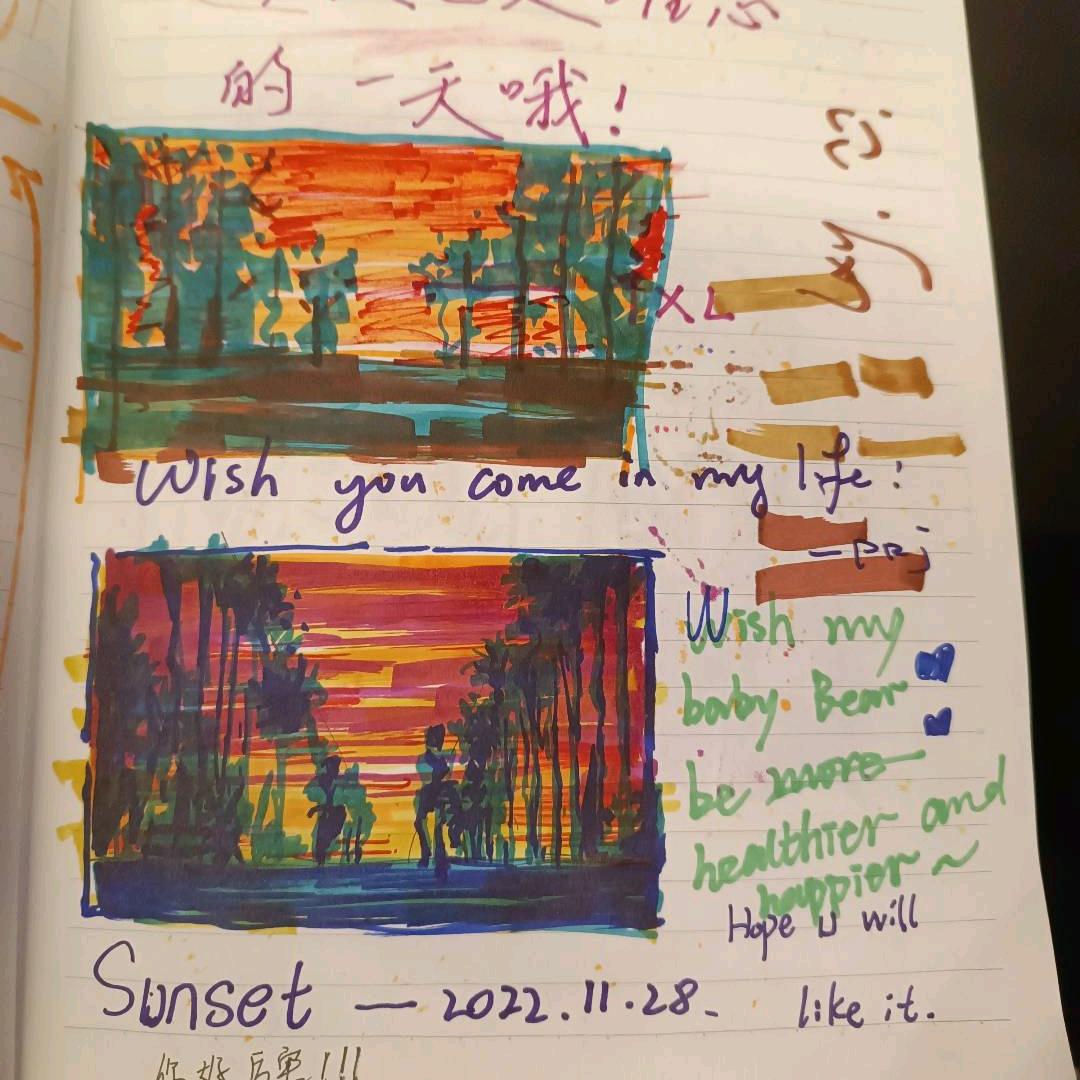 的一天哦！
XL
Wish you come in my life!
Wish my
baby Bear
be more
healthier and
happier ~
Hope u will
like it.
Sunset — 2022.11.28.
你好厉害!!!